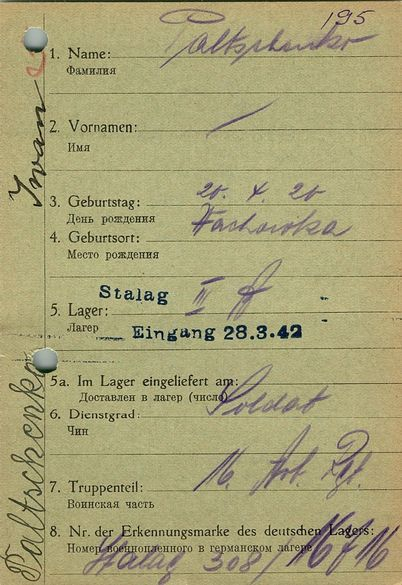 195
1. Name: Paltschenko
Фамилия
2. Vornamen: —
Имя
3. Geburtstag: 20. 4. 20
День рождения
4. Geburtsort:
Место рождения
Stalag III A
5. Lager:
Лагер
Eingang 28.3.42
5a. Im Lager eingeliefert am:
Доставлен в лагер (число)
6. Dienstgrad: Soldat
Чин
16. Art. Rgt.
7. Truppenteil:
Воинская часть
8. Nr. der Erkennungsmarke des deutschen Lagers:
Номер военнопленного в германском лагере
Stalag 308/
Paltschenko Iwan